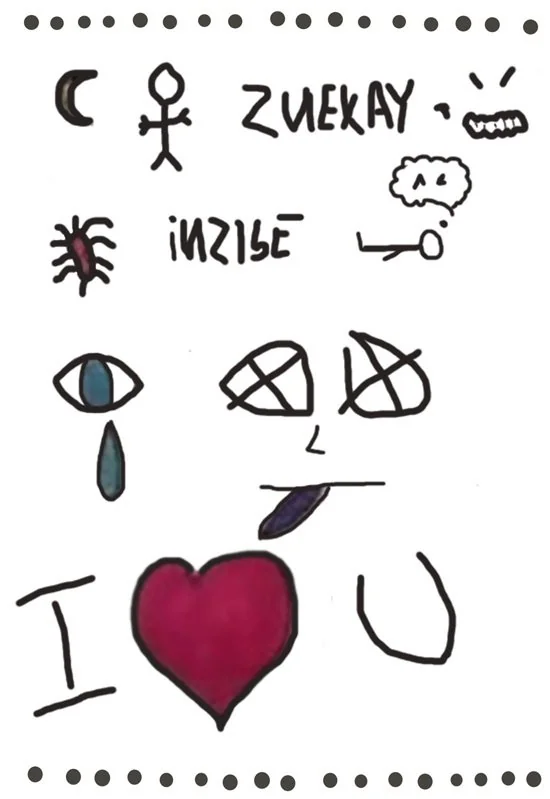 ZUEKAY
INZIBE
I U